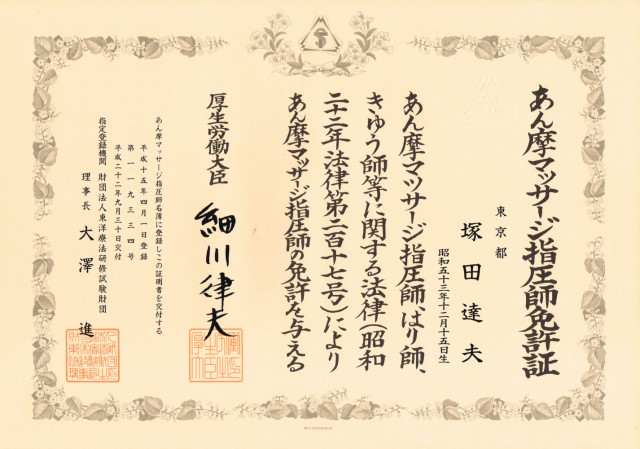 あん摩マッサージ指圧師免許証
東京都
塚田達夫
昭和五十三年十二月十五日生
あん摩マッサージ指圧師、はり師、
きゆう師等に関する法律（昭和
二十二年法律第二百十七号）により
あん摩マッサージ指圧師の免許を与える
厚生労働大臣
細川律夫
あん摩マッサージ指圧師名簿に登録しこの証明書を交付する
平成十五年四月一日登録
第一一九三三四号
平成二十二年九月三十日交付
指定登録機関 財団法人東洋療法研修試験財団
理事長 大澤 進